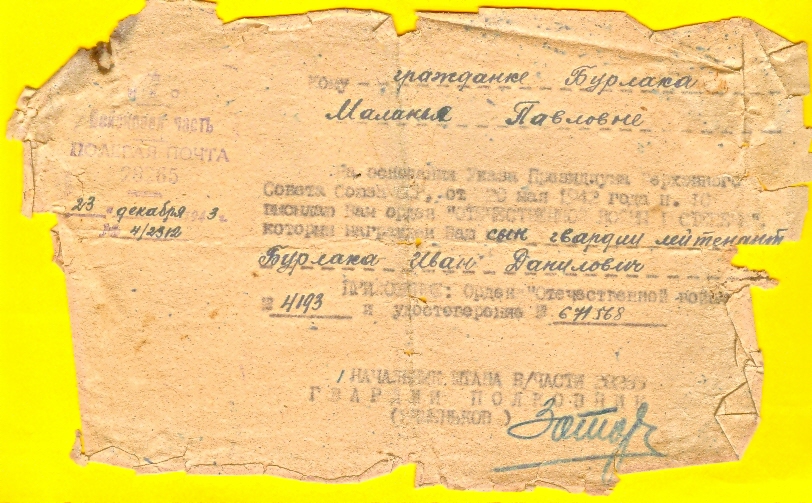 Войсковая часть
ПОЛЕВАЯ ПОЧТА
"23" декабря 1943 г.
№ 4/2312
Кому - гражданке Бурлака
Маланье Павловне
На основании Указа Президиума Верховного
Совета Союза от мая 1942 года
высылаю Вам орден "ОТЕЧЕСТВЕННОЙ ВОЙНЫ I СТЕПЕНИ",
которым награжден Ваш сын гвардии лейтенант
Бурлака Иван Данилович
ПРИЛОЖЕНИЕ: Орден "Отечественной войны"
№ 4193 и удостоверение № 671568
НАЧАЛЬНИК ШТАБА В/ЧАСТИ
ГВАРДИИ ПОЛКОВНИК